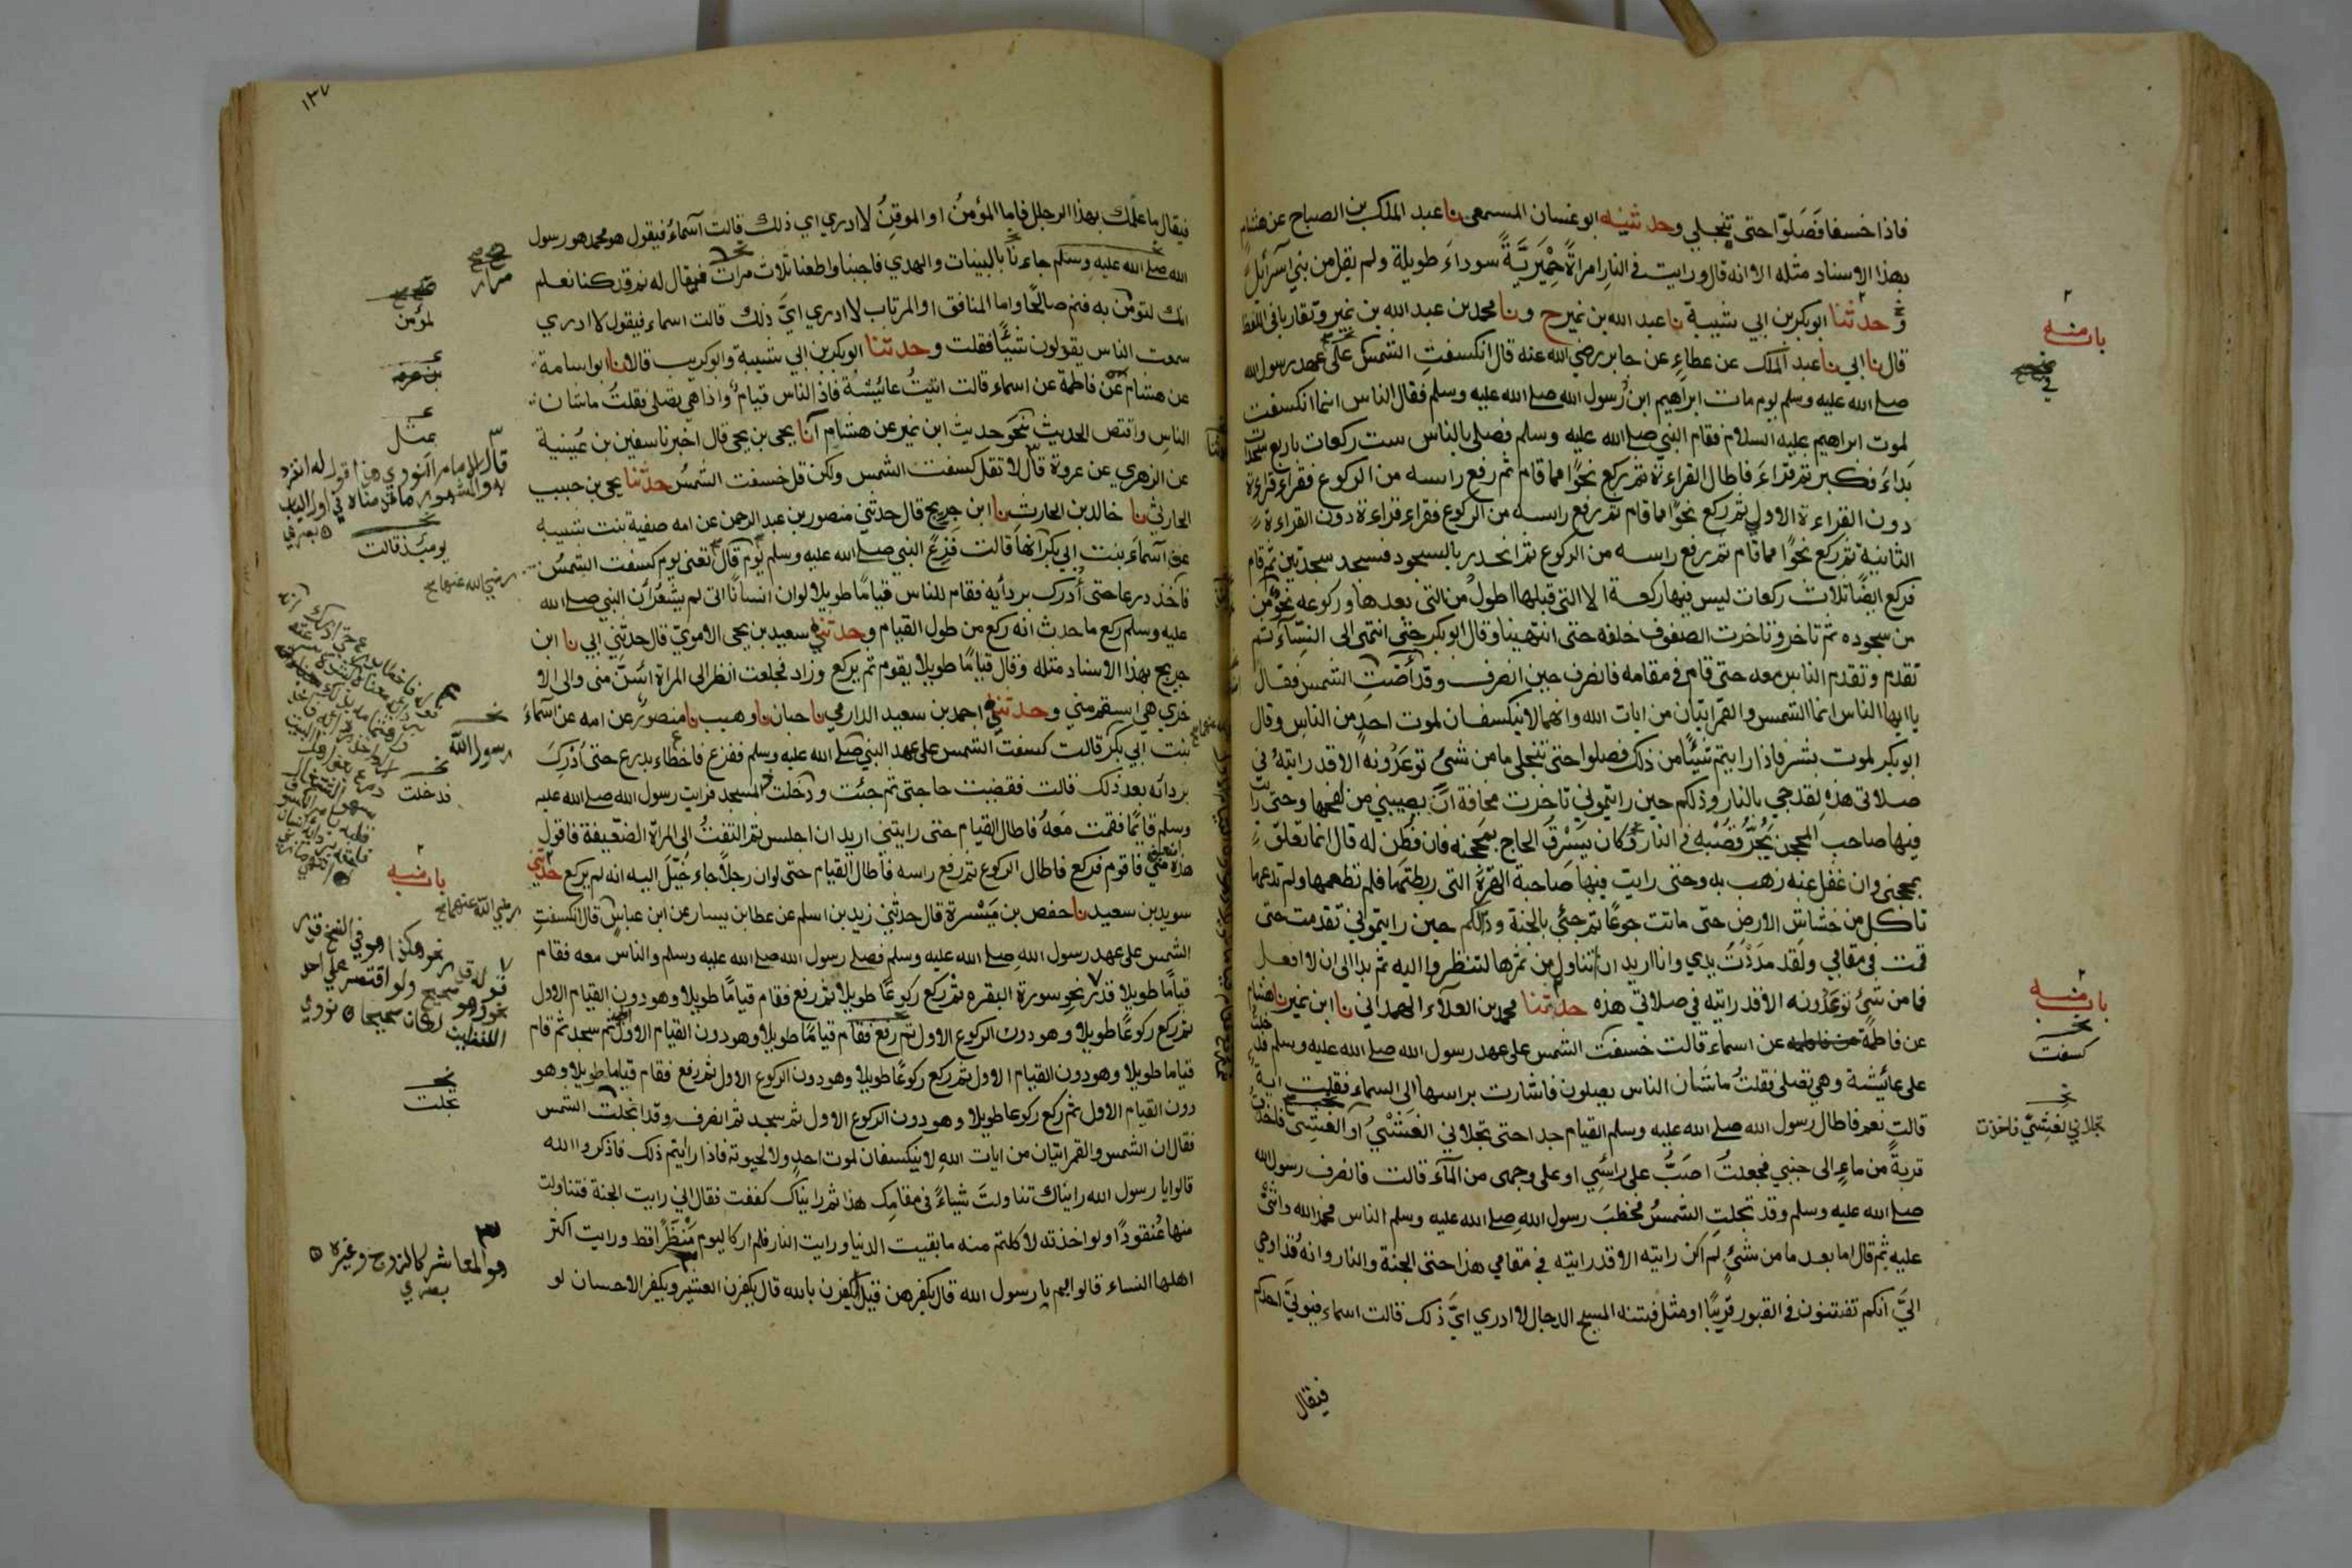 فاذا خسفا فصلوا حتى تنجلي وحدثنيه ابو غسان المسمعي نا عبد الملك بن الصباح عن هشام
بهذا الاسناد مثله الا انه قال ورايت في النار امراة حميرية سوداء طويلة ولم يقل من بني اسرائيل
وحدثنا ابو بكر بن ابي شيبة نا عبد الله بن نمير ح ونا محمد بن عبد الله بن نمير وتقاربا في اللفظ
قال نا ابي نا عبد الملك عن عطاء عن جابر رضي الله عنه قال انكسفت الشمس على عهد رسول الله
صلى الله عليه وسلم يوم مات ابراهيم ابن رسول الله صلى الله عليه وسلم فقال الناس انما انكسفت
لموت ابراهيم عليه السلام فقام النبي صلى الله عليه وسلم فصلى بالناس ست ركعات باربع سجدات
بداء فكبر ثم قراء فاطال القراءة ثم ركع نحوا مما قام ثم رفع راسه من الركوع فقراء قراءة
دون القراءة الاولى ثم ركع نحوا مما قام ثم رفع راسه من الركوع فقراء قراءة دون القراءة
الثانية ثم ركع نحوا مما قام ثم رفع راسه من الركوع ثم انحدر بالسجود فسجد سجدتين ثم قام
فركع ايضا ثلاث ركعات ليس فيها ركعة الا التي قبلها اطول من التي بعدها وركوعه نحو من
من سجوده ثم تاخر وتاخرت الصفوف خلفه حتى انتهينا وقال ابو بكر حتى انتهى الى النساء ثم
تقدم وتقدم الناس معه حتى قام في مقامه فانصرف حين انصرف وقد أضت الشمس فقال
يا ايها الناس انما الشمس والقمر ايتان من ايات الله وانهما لا ينكسفان لموت احد من الناس وقال
ابو بكر لموت بشر فاذا رايتم شيئا من ذلك فصلوا حتى تنجلي ما من شئ توعدونه الا قد رايته في
صلاتي هذه لقد جي بالنار وذلكم حين رايتموني تاخرت مخافة ان يصيبني من لفحها وحتى رايت
فيها صاحب المحجن يجر قصبه في النار وكان يسرق الحاج بمحجنه فان فطن له قال انما تعلق
بمحجني وان غفل عنه ذهب به وحتى رايت فيها صاحبة الهرة التي ربطتها فلم تطعمها ولم تدعها
تاكل من خشاش الارض حتى ماتت جوعا ثم جئ بالجنة وذلكم حين رايتموني تقدمت حتى
قمت في مقامي ولقد مددت يدي وانا اريد ان اتناول من ثمرها لتنظروا اليه ثم بدا الى ان لا افعل
فما من شئ توعدونه الا قد رايته في صلاتي هذه حدثنا محمد بن العلاء الهمداني نا ابن نمير نا هشام
عن فاطمة عن اسماء قالت خسفت الشمس على عهد رسول الله صلى الله عليه وسلم فدخلت
على عائيشة وهي تصلي فقلت ما شان الناس يصلون فاشارت براسها الى السماء فقلت اية
قالت نعم فاطال رسول الله صلى الله عليه وسلم القيام جدا حتى تجلاني الغشي او الغشي فاخذت
قربة من ماء الى جنبي فجعلت اصب على راسي او على وجهي من الماء قالت فانصرف رسول الله
صلى الله عليه وسلم وقد تجلت الشمس فخطب رسول الله صلى الله عليه وسلم الناس فحمد الله واثنى
عليه ثم قال اما بعد ما من شئ لم اكن رايته الا قد رايته في مقامي هذا حتى الجنة والنار وانه قد اوحي
الي انكم تفتنون في القبور قريبا او مثل فتنة المسيح الدجال لا ادري اي ذلك قالت اسماء فيوتى احدكم
فيقال
باب منه
في
باب منه
كسفت
تجلاني الغشي فاخذت
١٣٧
فيقال ما علمك بهذا الرجل فاما المؤمن او الموقن لا ادري اي ذلك قالت اسماء فيقول هو محمد هو رسول
الله صلى الله عليه وسلم جاءنا بالبينات والهدي فاجبنا واطعنا ثلاث مرات فيقال له نم قد كنا نعلم
انك لتومن به فنم صالحا واما المنافق او المرتاب لا ادري اي ذلك قالت اسماء فيقول لا ادري
سمعت الناس يقولون شيئا فقلت وحدثنا ابو بكر بن ابي شيبة وابو كريب قالا نا ابو اسامة
عن هشام عن فاطمة عن اسماء قالت اتيت عائيشة فاذا الناس قيام واذا هي تصلي فقلت ما شان
الناس واقتص الحديث نحو حديث ابن نمير عن هشام انا يحيى بن يحيى قال اخبرنا سفين بن عيينة
عن الزهري عن عروة قال لا تقل كسفت الشمس ولكن قل خسفت الشمس حدثنا يحيى بن حبيب
الحارثي نا خالد بن الحارث نا ابن جريج قال حدثني منصور بن عبد الرحمن عن امه صفية بنت شيبة
عن اسماء بنت ابي بكر انها قالت فزع النبي صلى الله عليه وسلم يوم قال تعنى يوم كسفت الشمس
فاخذ درعا حتى أدرك بردآيه فقام للناس قياما طويلا لو ان انسانا اتى لم يشعر ان النبي صلى الله
عليه وسلم ركع ما حدث انه ركع من طول القيام وحدثني سعيد بن يحيى الاموي قال حدثني ابي نا ابن
جريج بهذا الاسناد مثله وقال قياما طويلا يقوم ثم يركع وزاد فجعلت انظر الى المراة اسن مني والى الا
خرى هي اسقم مني وحدثني احمد بن سعيد الدارمي نا حبان نا وهيب نا منصور عن امه عن اسماء
بنت ابي بكر قالت كسفت الشمس على عهد النبي صلى الله عليه وسلم ففزع فاخطاء بدرع حتى أدرك
بردآئه بعد ذلك قالت فقضيت حاجتي ثم جئت ودخلت المسجد فرايت رسول الله صلى الله عليه
وسلم قائما فقمت معه فاطال القيام حتى رايتني اريد ان اجلس ثم التفت الى المراة الضعيفة فاقول
هذه اضعف مني فاقوم فركع فاطال الركوع ثم رفع راسه فاطال القيام حتى لو ان رجلا جاء خيل اليه انه لم يركع حدثني
سويد بن سعيد نا حفص بن ميسرة قال حدثني زيد بن اسلم عن عطا بن يسار عن ابن عباس قال انكسفت
الشمس على عهد رسول الله صلى الله عليه وسلم فصلى رسول الله صلى الله عليه وسلم والناس معه فقام
قياما طويلا قدر نحو سورة البقره ثم ركع ركوعا طويلا ثم رفع فقام قياما طويلا وهو دون القيام الاول
ثم ركع ركوعا طويلا وهو دون الركوع الاول ثم رفع فقام قياما طويلا وهو دون القيام الاول ثم سجد ثم قام
قياما طويلا وهو دون القيام الاول ثم ركع ركوعا طويلا وهو دون الركوع الاول ثم رفع فقام قياما طويلا وهو
دون القيام الاول ثم ركع ركوعا طويلا وهو دون الركوع الاول ثم سجد ثم انصرف وقد انجلت الشمس
فقال ان الشمس والقمر ايتان من ايات الله لا ينكسفان لموت احد ولا لحيوته فاذا رايتم ذلك فاذكروا الله
قالوا يا رسول الله رايناك تناولت شياء في مقامك هذا ثم رايناك كففت فقال اني رايت الجنة فتناولت
منها عنقودا ولو اخذته لاكلتم منه ما بقيت الدنيا ورايت النار فلم ار كاليوم منظرا قط ورايت اكثر
اهلها النساء قالوا بم يا رسول الله قال بكفرهن قيل ايكفرن بالله قال يكفرن العشير ويكفر الاحسان لو
مرار
لمؤمن
بمثل
قال الامام النووي هذا قول له انفرد
به والمشهور ما قدمناه في اول الباب
يومئذ قالت
رضي الله عنهما
رسول الله
فدخلت
باب منه
رضي الله عنهما
قوله قدر نحو هكذا هو في النسخ قدر
نحو وهو صحيح ولو اقتصر على احد
اللفظين لكان صحيحا نووي
تجلت
هو المعاشر كالزوج وغيره